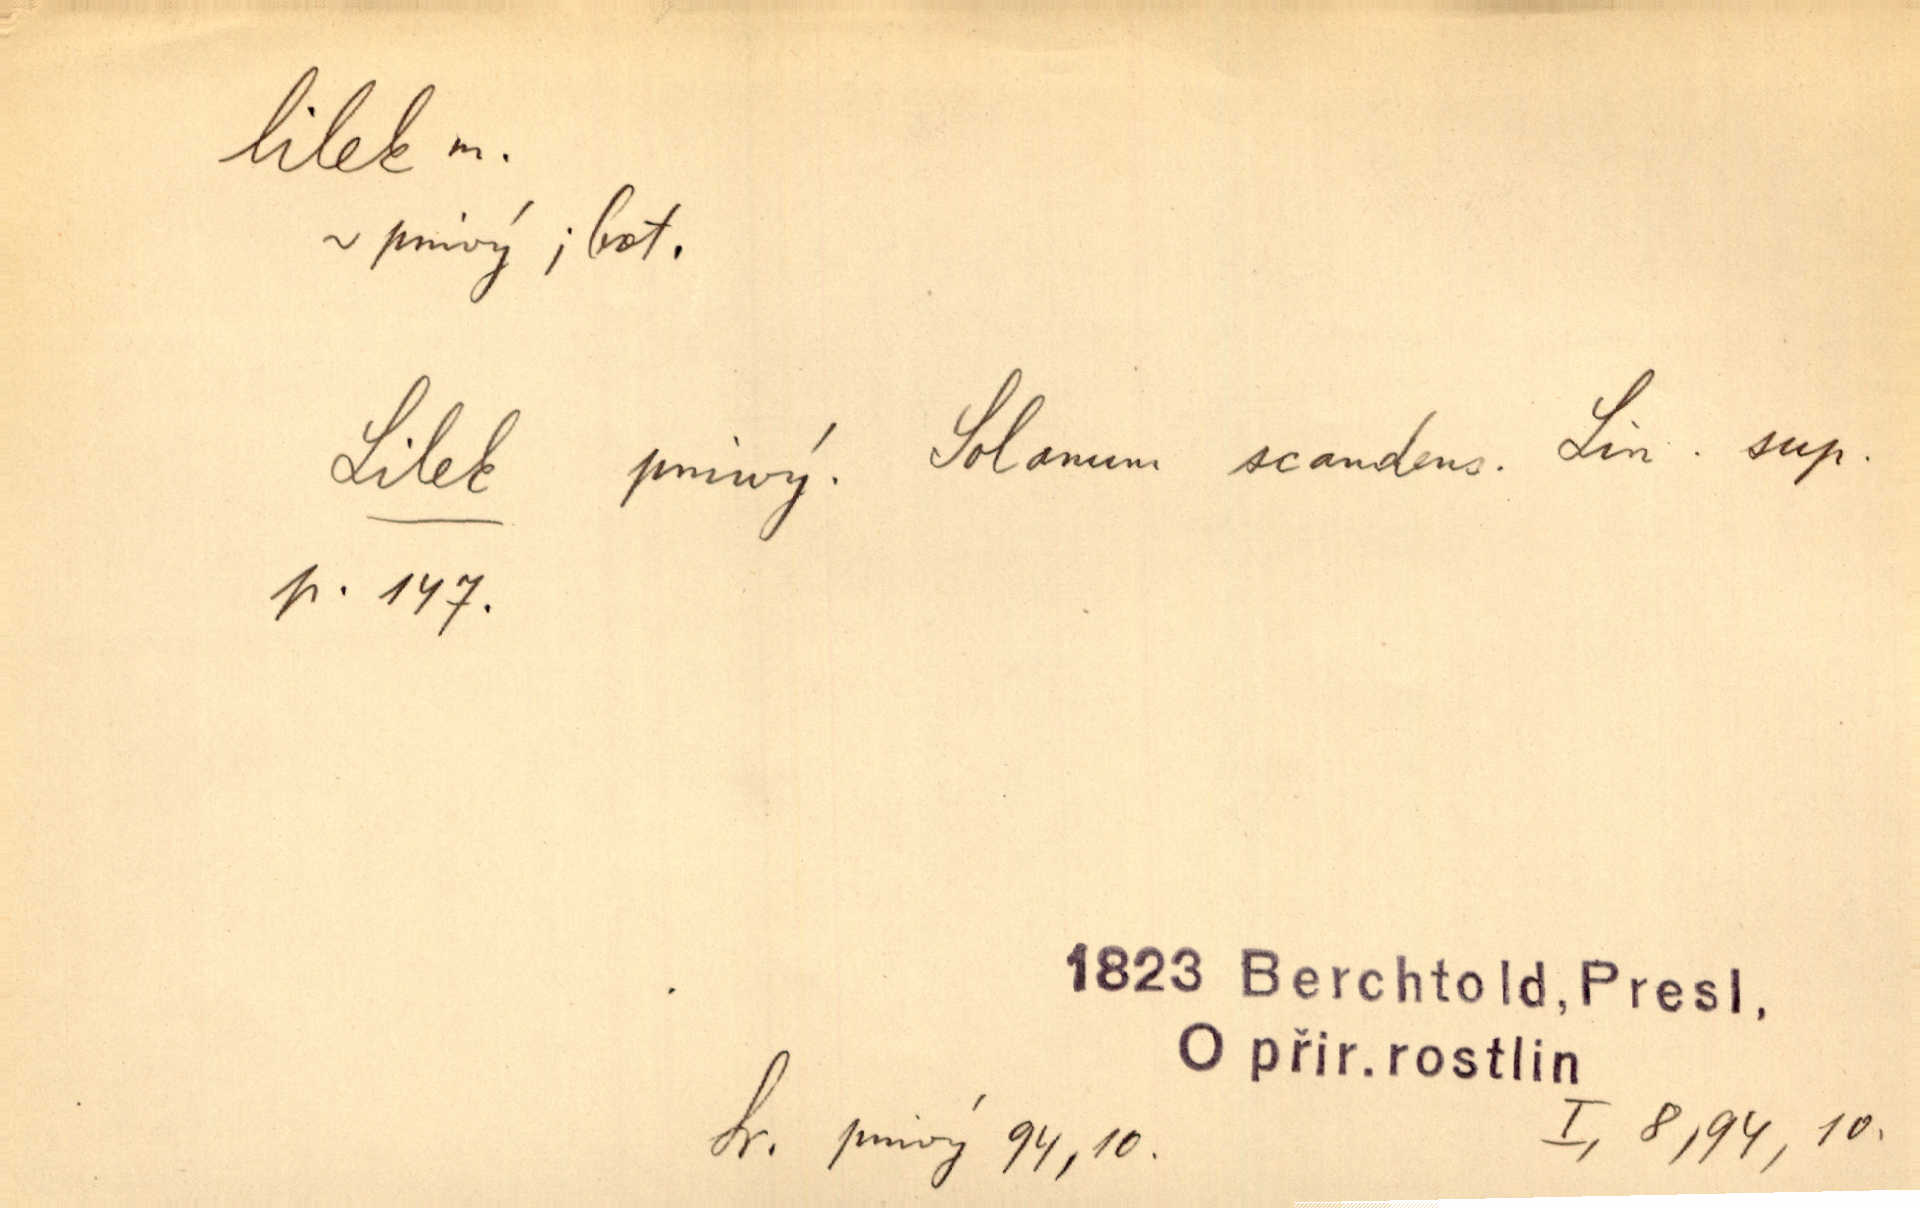 lilek m.
~ pnivý ; bot.
Lilek pniwý. Solanum scandens. Lin. sup.
p. 147.
1823 Berchtold, Presl,
O přir. rostlin
Sr. pnivý 94, 10.
I, 8, 94, 10.